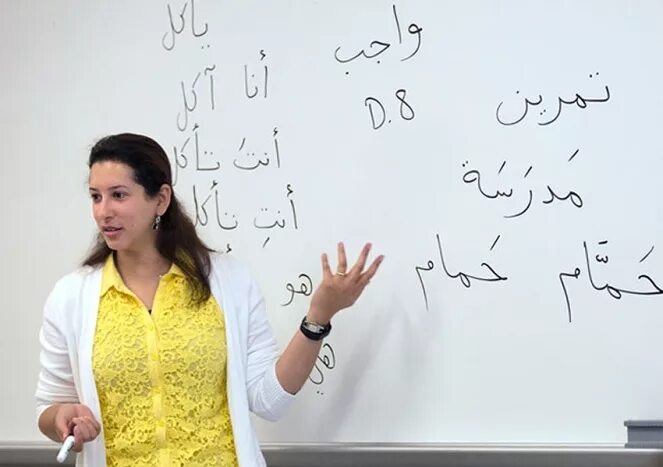 تمرين
مَدرَسَة
حَمَّام حَمام
واجب
D.8
يأكل
أنا آكل
أنتَ تأكل
أنتِ تأكل
هو
هي